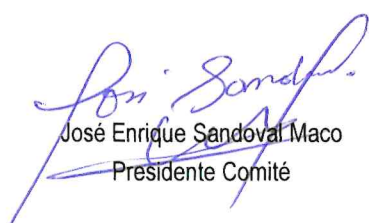 José Enrique Sandoval Maco
Presidente Comité